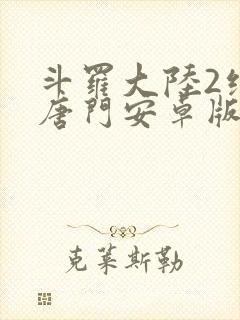 斗羅大陸2
唐門安卓版
克莱斯勒